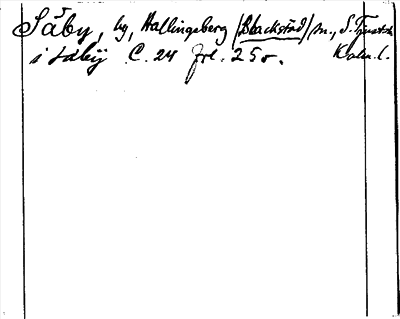 Säby, by, Hallingeberg (Blackstad) sn., S. Tjusts
i säby C. 24 frl. 250. Kalm. l.